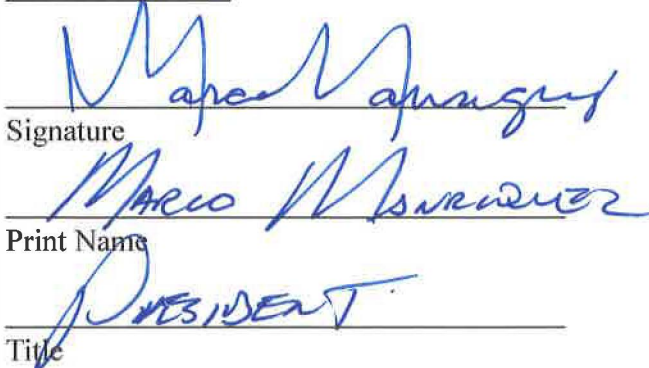 Marco Manriquez
Signature
MARCO MANRIQUEZ
Print Name
PRESIDENT
Title